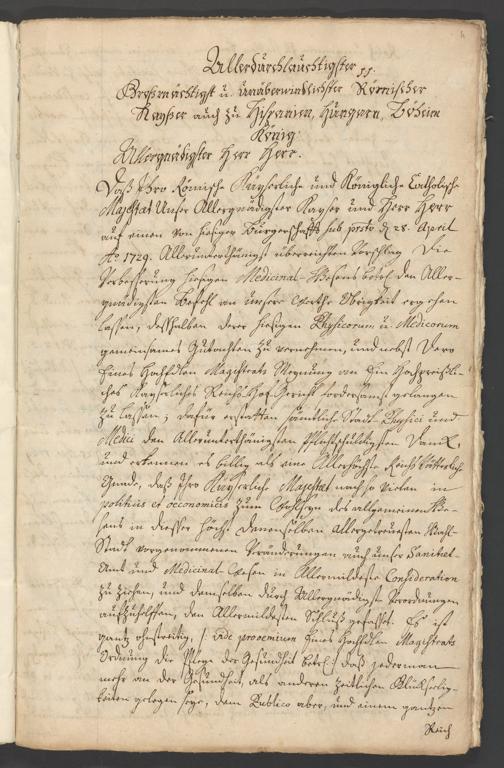 Allerdurchlauchtigster
Großmächtigst u. unüberwindlichster Römischer
Kayßer auch zu Hispanien, Hungarn, Böheim
König.
Allergnädigster Herr Herr.
Daß Ihro Römische Kayserliche und Königliche Catholische
Majestat Unser Allergnädigster Kayser und Herr Herr
auf einen von hiesiger Burgerschafft sub pnsto d. 28. April
Ao 1729. Allerunterthänigst überreichten Vorschlag die
Verbesserung hiesigen Medicinal-Wesens betrl. den Aller-
gnädigsten Befehl an unsere Obrigkeit ergehen
lassen, deßhalben derer hiesigen Physicorum u. Medicorum
gemeinsames Gutachten zu vernehmen, und nebst Dero
Eines HochEdlen Magistrats Meynung an Ein Hochpreißli-
ches Kayserliches Reichs Hof Gericht fordersamst gelangen
zu lassen; dafür erstatten sämtliche Stadt Physici und
Medici den Allerunterthänigsten Pflichtschuldigsten Danck
und erkennen es billig als eine Allerhöchste ReichsVätterliche
Gnade, daß Ihro Kayserliche Majestät nach so vielen in
politicis et oeconomicis zum des allgemeinen We-
sens in dieser Höchst Deroselben Allergetreuesten Wahl-
Stadt vorgenommenen Veränderungen auch unser Sanitæt-
Amt und Medicinal Wesen in Allermildeste Consideration
zu ziehen, und demselben durch Allergnädigste Verordnungen
aufzuhelffen, den Allermildesten Schluß gefasset. Es ist
gantz ohnstreitig, /: vide prooemium Eines HochEdlen Magistrats
Ordnung die Pflege der Gesundheit betrl :/ daß jedermann
mehr an der Gesundheit, als anderen zeitlichen Glückseelig-
keiten gelegen seye, dem Publico aber, und einem gantzen
Reich